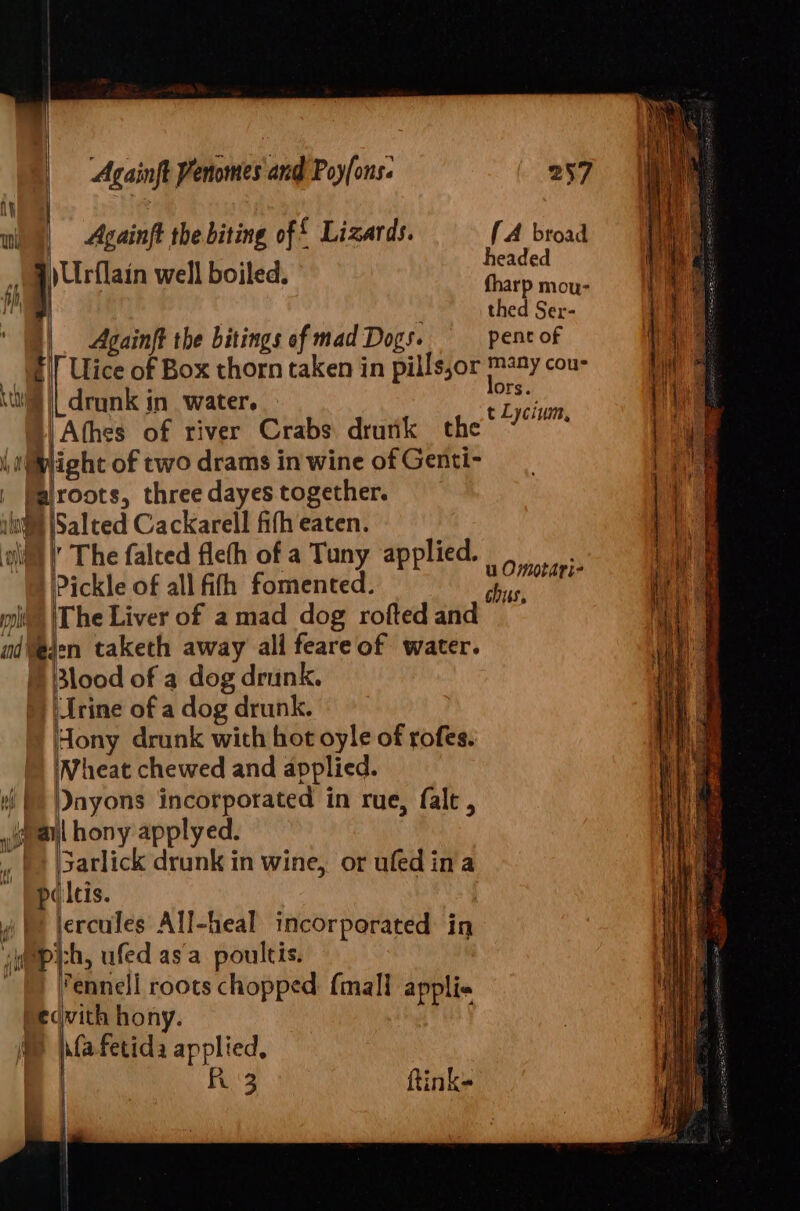 Againſt Venomes and Poyſons. 257
Againſt the biting of ſ Lizards.
Urſlain well boiled.
Againſt the bitings of mad Dogs.
Uice of Box thorn taken in pills, or
drunk in water.
Aſhes of river Crabs drunk the
ight of two drams in wine of Genti-
roots, three dayes together.
Salted Cackarell fiſh eaten.
The ſalted fleſh of a Tuny applied.
Pickle of all fiſh fomented.
The Liver of a mad dog roſted and
en taketh away all feare of water.
Blood of a dog drunk.
Urine of a dog drunk.
Hony drunk with hot oyle of roſes.
Wheat chewed and applied.
Onyons incorporated in rue, ſalt,
hony applyed.
Garlick drunk in wine, or uſed in a
ltis.
Hercules All-heal incorporated in
uſed as a poultis.
Fennell roots chopped ſmall applie
with hony.
Aſſa fetida applied,
R 3 ſtink-
ſ A broad
headed
ſharp mou-
thed Ser-
pent of
many cou-
lors.
t Lycium,
u Omotari-
chus,